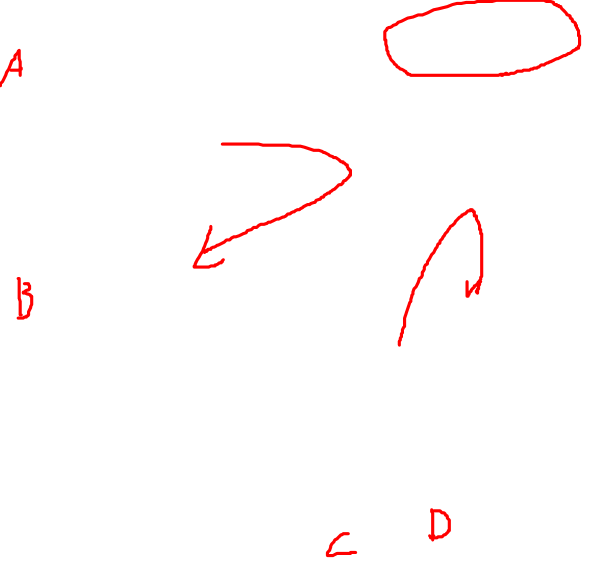 A
B
C D